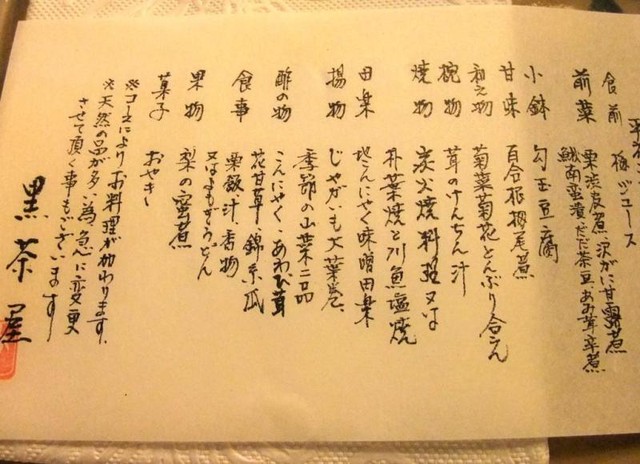 食前 梅ジュース
前菜 栗渋皮煮 沢がに甘露煮
鱥南蛮漬 だだ茶豆 あみ茸辛煮
小鉢 勾玉豆腐
甘味 百合根
和え物 菊菜菊花とんぶり合え
椀物 茸のけんちん汁
焼物 炭火焼料理 又は
朴葉焼と川魚塩焼
田楽 地こんにゃく味噌田楽
揚物 じゃがいも大葉包
季節の山菜二品
酢の物 こんにゃく・あわび茸
花甘草・錦糸瓜
食事 栗飯・汁・香物
又はよもぎうどん
果物 梨の蜜煮
菓子 おやき
※コースによりお料理が加わります。
※天然の品が多い為、急に変更
させて頂く事もございます
黒茶屋